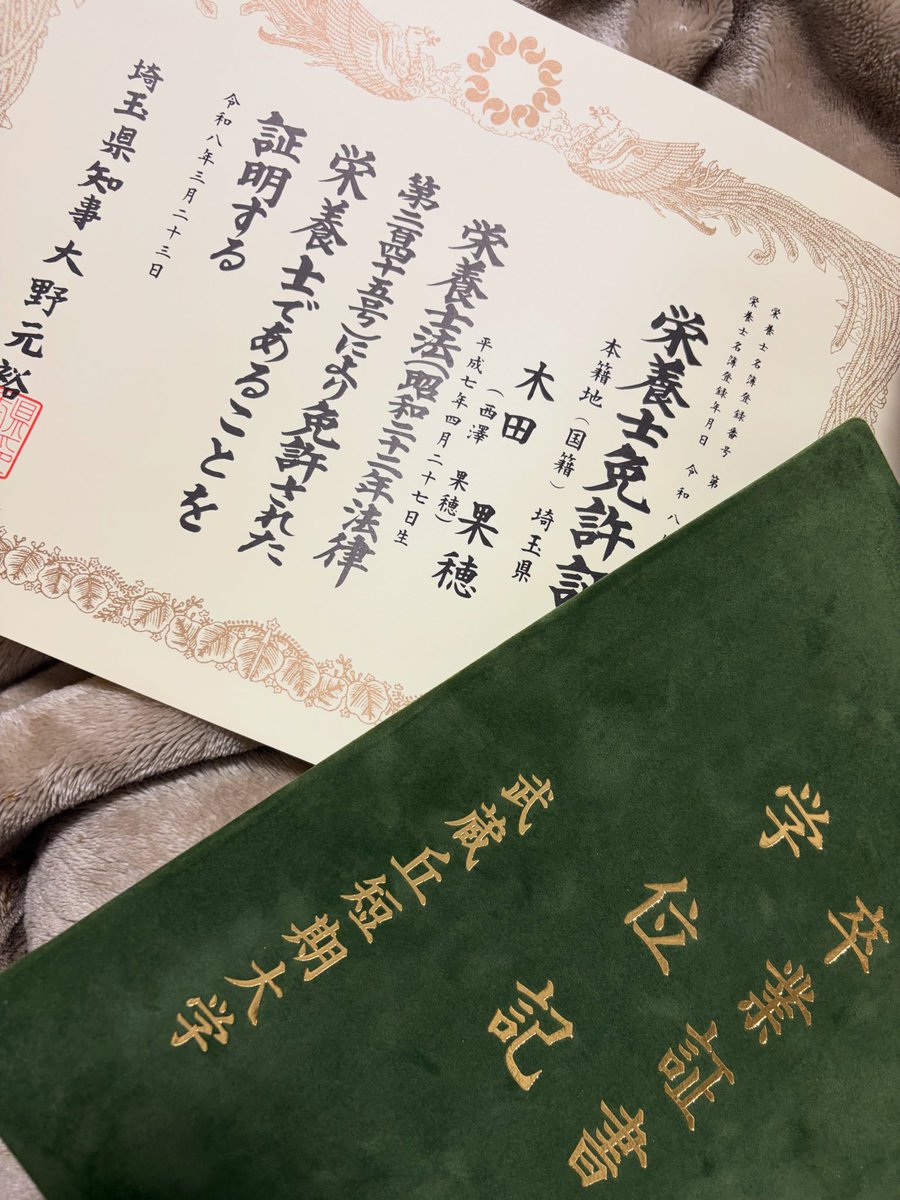 栄養士名簿登録番号 第
栄養士名簿登録年月日 令和八
栄養士免許証
本籍地（国籍） 埼玉県
木田 果穂
（西澤 果穂）
平成七年四月二十七日生
栄養士法（昭和二十二年法律
第二百四十五号）により免許された
栄養士であることを
証明する
令和八年三月二十三日
埼玉県知事 大野元裕
卒業証書
学位記
武蔵丘短期大学